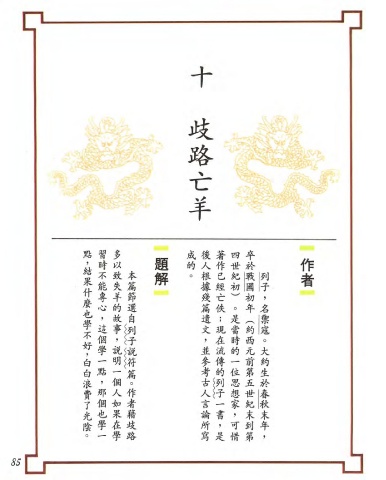 十　歧路亡羊
作者
列子，名禦寇。大約生於春秋末年，
卒於戰國初年（約西元前第五世紀末到第
四世紀初）。是當時的一位思想家，可惜
著作已經亡佚；現在流傳的列子一書，是
後人根據幾篇遺文，並參考古人言論所寫
成的。
題解
本篇節選自列子說符篇。作者藉歧路
多以致失羊的故事，說明一個人如果在學
習時不能專心，這個學一點，那個也學一
點，結果什麼也學不好，白白浪費了光陰。
85